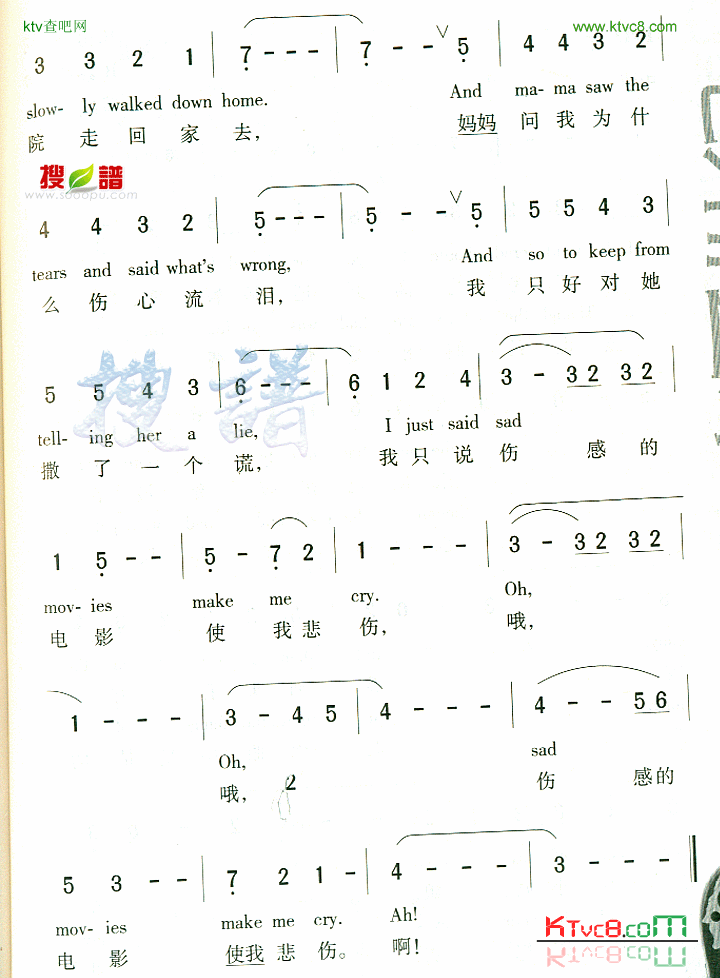 ktv查吧网 www.ktvc8.com
3 3 2 1 | 7 - - - | 7 - - V 5 | 4 4 3 2 |
slow- ly walked down home. And ma- ma saw the
院 走 回 家 去, 妈妈 问 我 为 什
搜 谱
www.sooopu.com
4 4 3 2 | 5 - - - | 5 - - V 5 | 5 5 4 3 |
tears and said what's wrong, And so to keep from
么 伤 心 流 泪, 我 只 好 对 她
搜 谱
5 5 4 3 | 6 - - - | 6 1 2 4 | 3 - 32 32 |
tell- ing her a lie, I just said sad
撒 了 一 个 谎, 我 只 说 伤 感 的
1 5 - - | 5 - 7 2 | 1 - - - | 3 - 32 32 |
mov- ies make me cry. Oh,
电 影 使 我 悲 伤, 哦,
1 - - - | 3 - 4 5 | 4 - - - | 4 - - 56 |
Oh, sad
哦, 伤 感 的
5 3 - - | 7 2 1 - | 4 - - - | 3 - - - ‖
mov- ies make me cry. Ah!
电 影 使我 悲 伤。 啊!
KTvc8.com